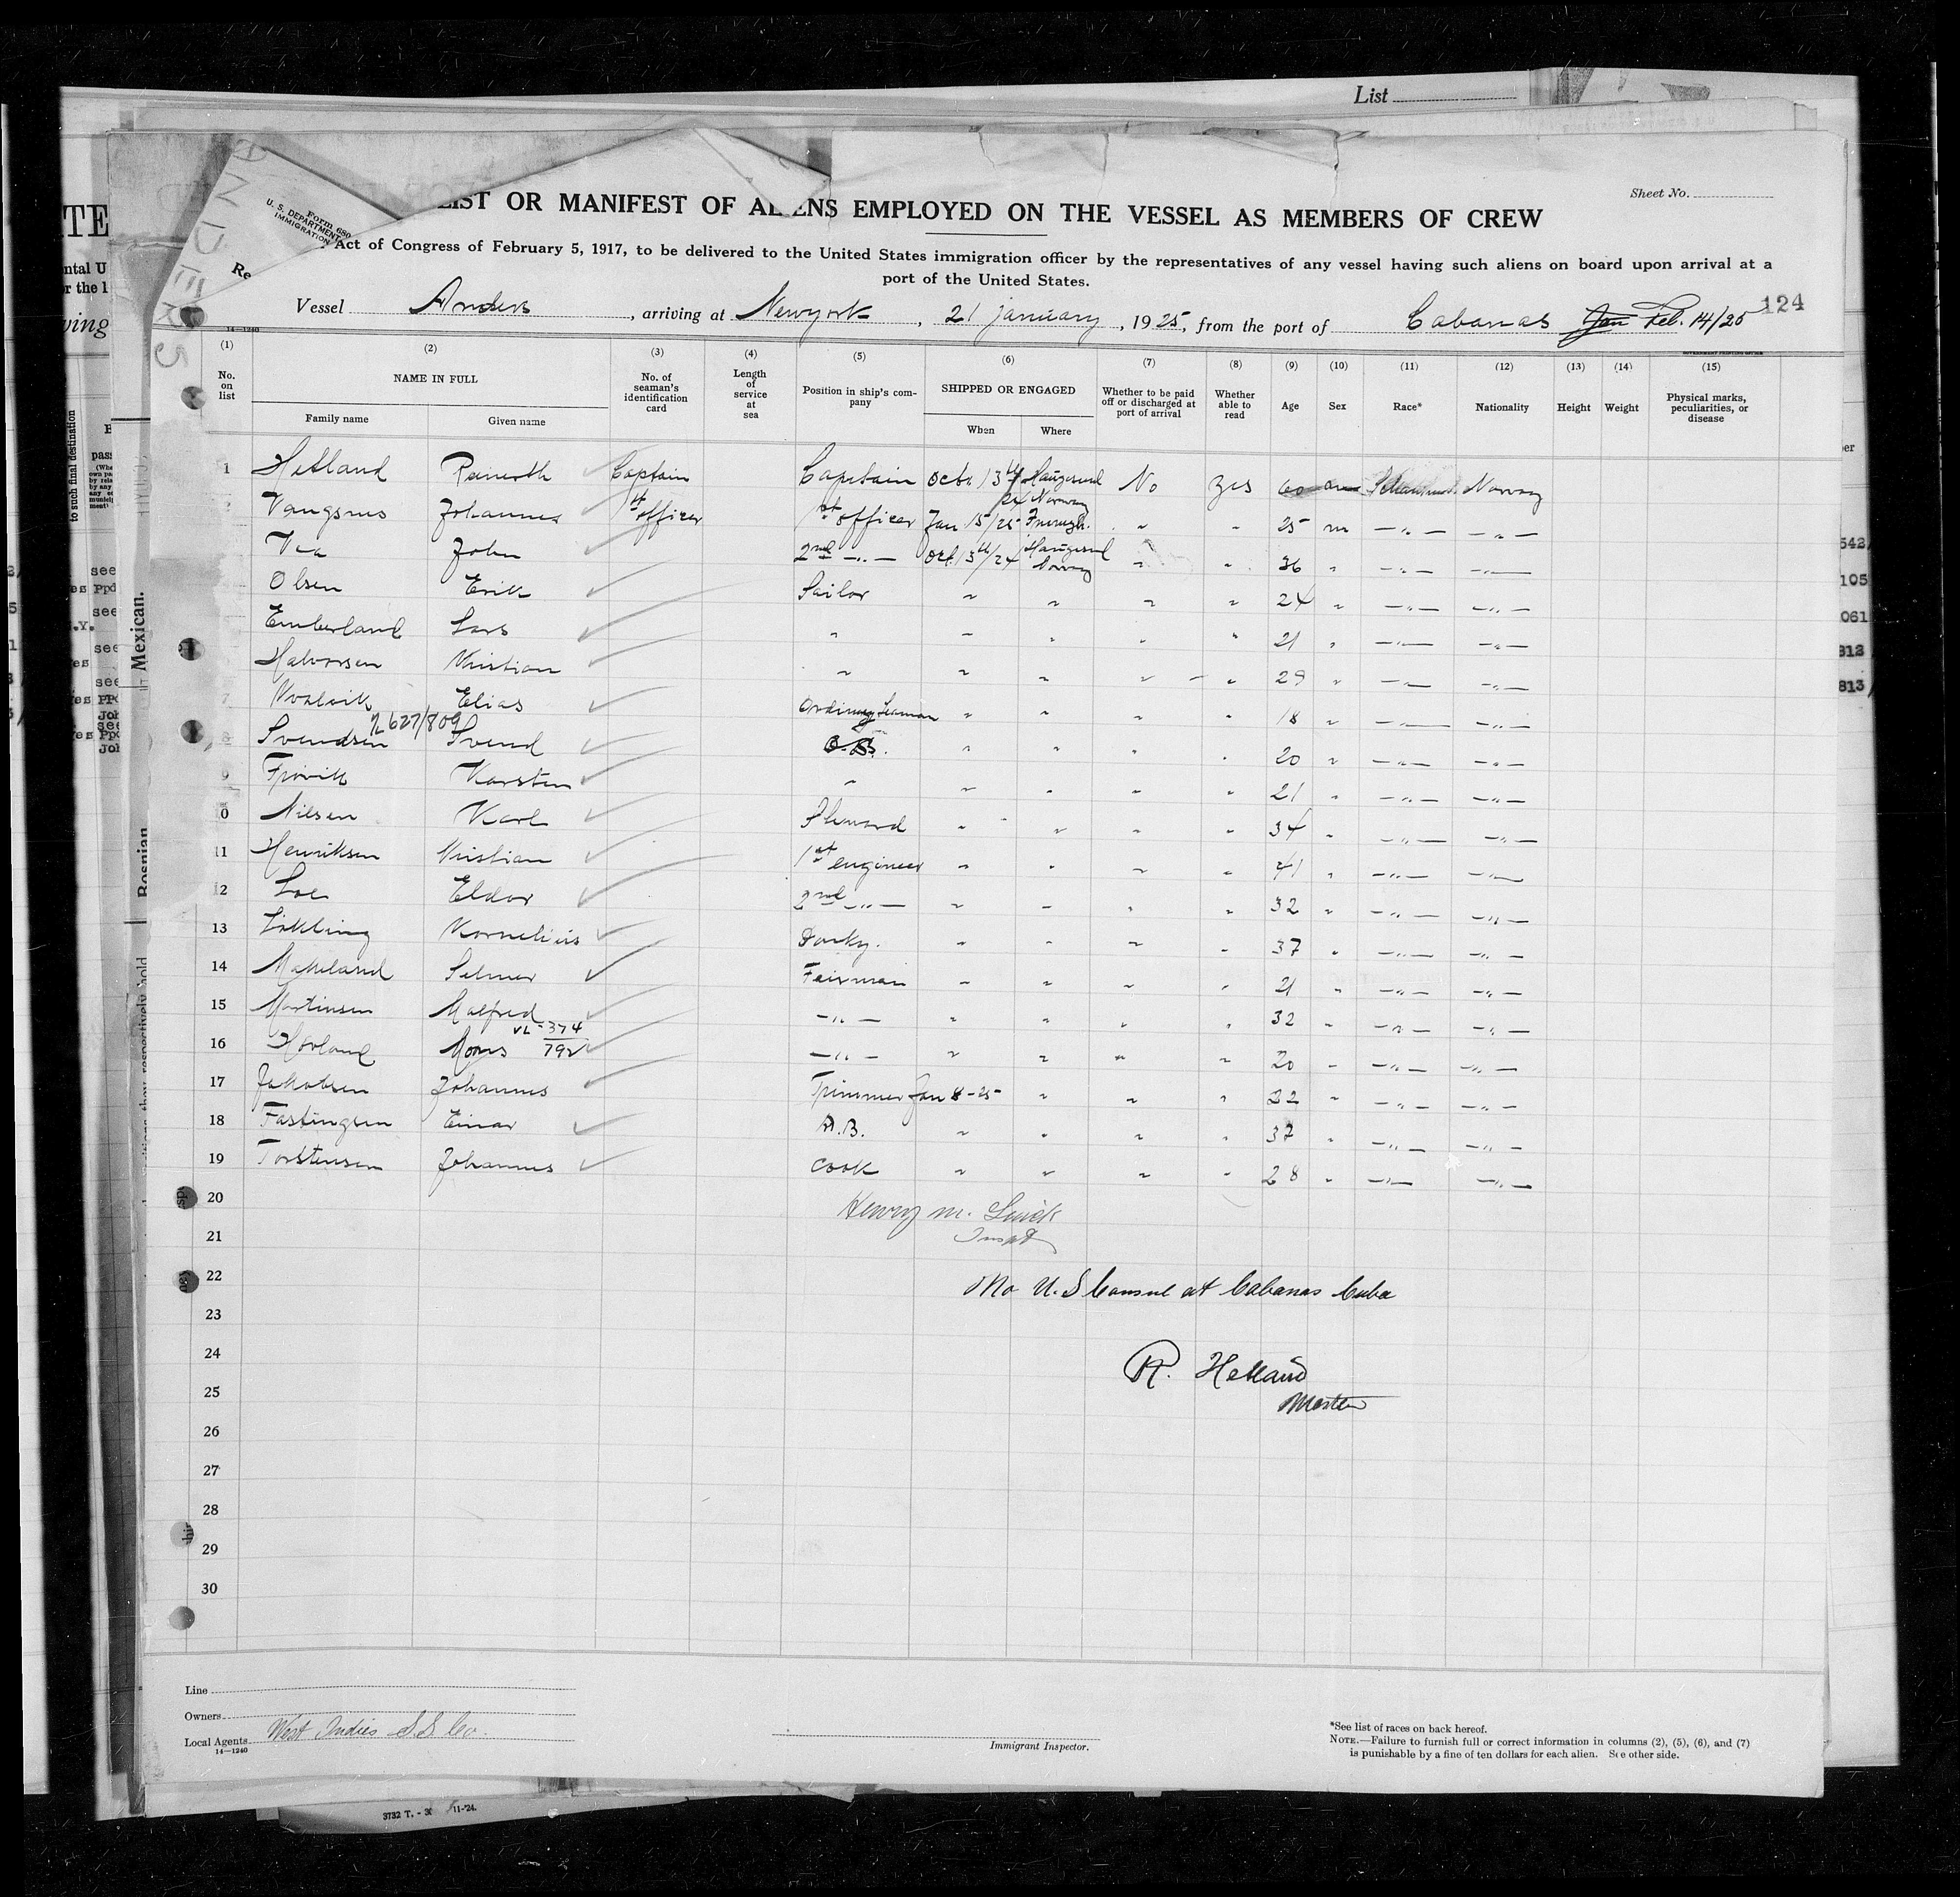 List
Sheet No.
Form 680
U. S. DEPARTMENT
IMMIGRATION
LIST OR MANIFEST OF ALIENS EMPLOYED ON THE VESSEL AS MEMBERS OF CREW
Act of Congress of February 5, 1917, to be delivered to the United States immigration officer by the representatives of any vessel having such aliens on board upon arrival at a
port of the United States.
Vessel Anders, arriving at Newyork, 21 january, 1925, from the port of Cabanas Jan Feb. 14/25 124
14—1240
(1) (2) (3) (4) (5) (6) (7) (8) (9) (10) (11) (12) (13) (14) (15)
No. on list NAME IN FULL No. of seaman's identification card Length of service at sea Position in ship's company SHIPPED OR ENGAGED Whether to be paid off or discharged at port of arrival Whether able to read Age Sex Race* Nationality Height Weight Physical marks, peculiarities, or disease
Family name Given name When Where
1 Hetland Reinerth Captain Capitain Octo 13th/24 Haugesund Norway No yes 60 m Norway
Vangsnes Johannes 1st officer 1st officer Jan 15/25 " " 25 m —"— —"—
Vea John 2nd —"— Oct. 13th/24 Haugesund Norway " " 36 " —"— —"—
Olsen Erik Sailor " " " " 24 " —"— —"—
Emberland Lars " " " " " 21 " —"— —"—
Halvorsen Kristian " " " " " 29 " —"— —"—
7 Kvalvik Elias Ordinary Seaman " " " " 18 " —"— —"—
627/809
8 Svendsen Svend O.S. " " " " 20 " —"— —"—
9 Karsten " " " " " 21 " —"— —"—
0 Nilsen Karl Steward " " " " 34 " —"— —"—
11 Henriksen Kristian 1st engineer " " " " 41 " —"— —"—
12 Loe Eldor 2nd —"— " " " " 32 " —"— —"—
13 Lökling Kornelius Donky. " " " " 37 " —"— —"—
14 Mækeland Selmer Fairman " " " " 21 " —"— —"—
15 Martinsen Malfred —"— " " " " 32 " —"— —"—
VL-374
792
16 Hovland Mons —"— " " " " 20 " —"— —"—
17 Jakobsen Johannes Trimmer Jan 8-25 " " " 22 " —"— —"—
18 Fastingsen Einar A.B. " " " " 37 " —"— —"—
19 Torstensen Johannes Cook " " " " 28 " —"— —"—
20
Henry M.
21
Inspt
22
No U.S Consul at Cabanas Cuba
23
24
R. Hetland
25
Master
26
27
28
29
30
Line
Owners
Local Agents West Indies S S Co.
14—1240
Immigrant Inspector.
*See list of races on back hereof.
NOTE.—Failure to furnish full or correct information in columns (2), (5), (6), and (7)
is punishable by a fine of ten dollars for each alien. See other side.
Mexican.
Bosnian
ANDERS